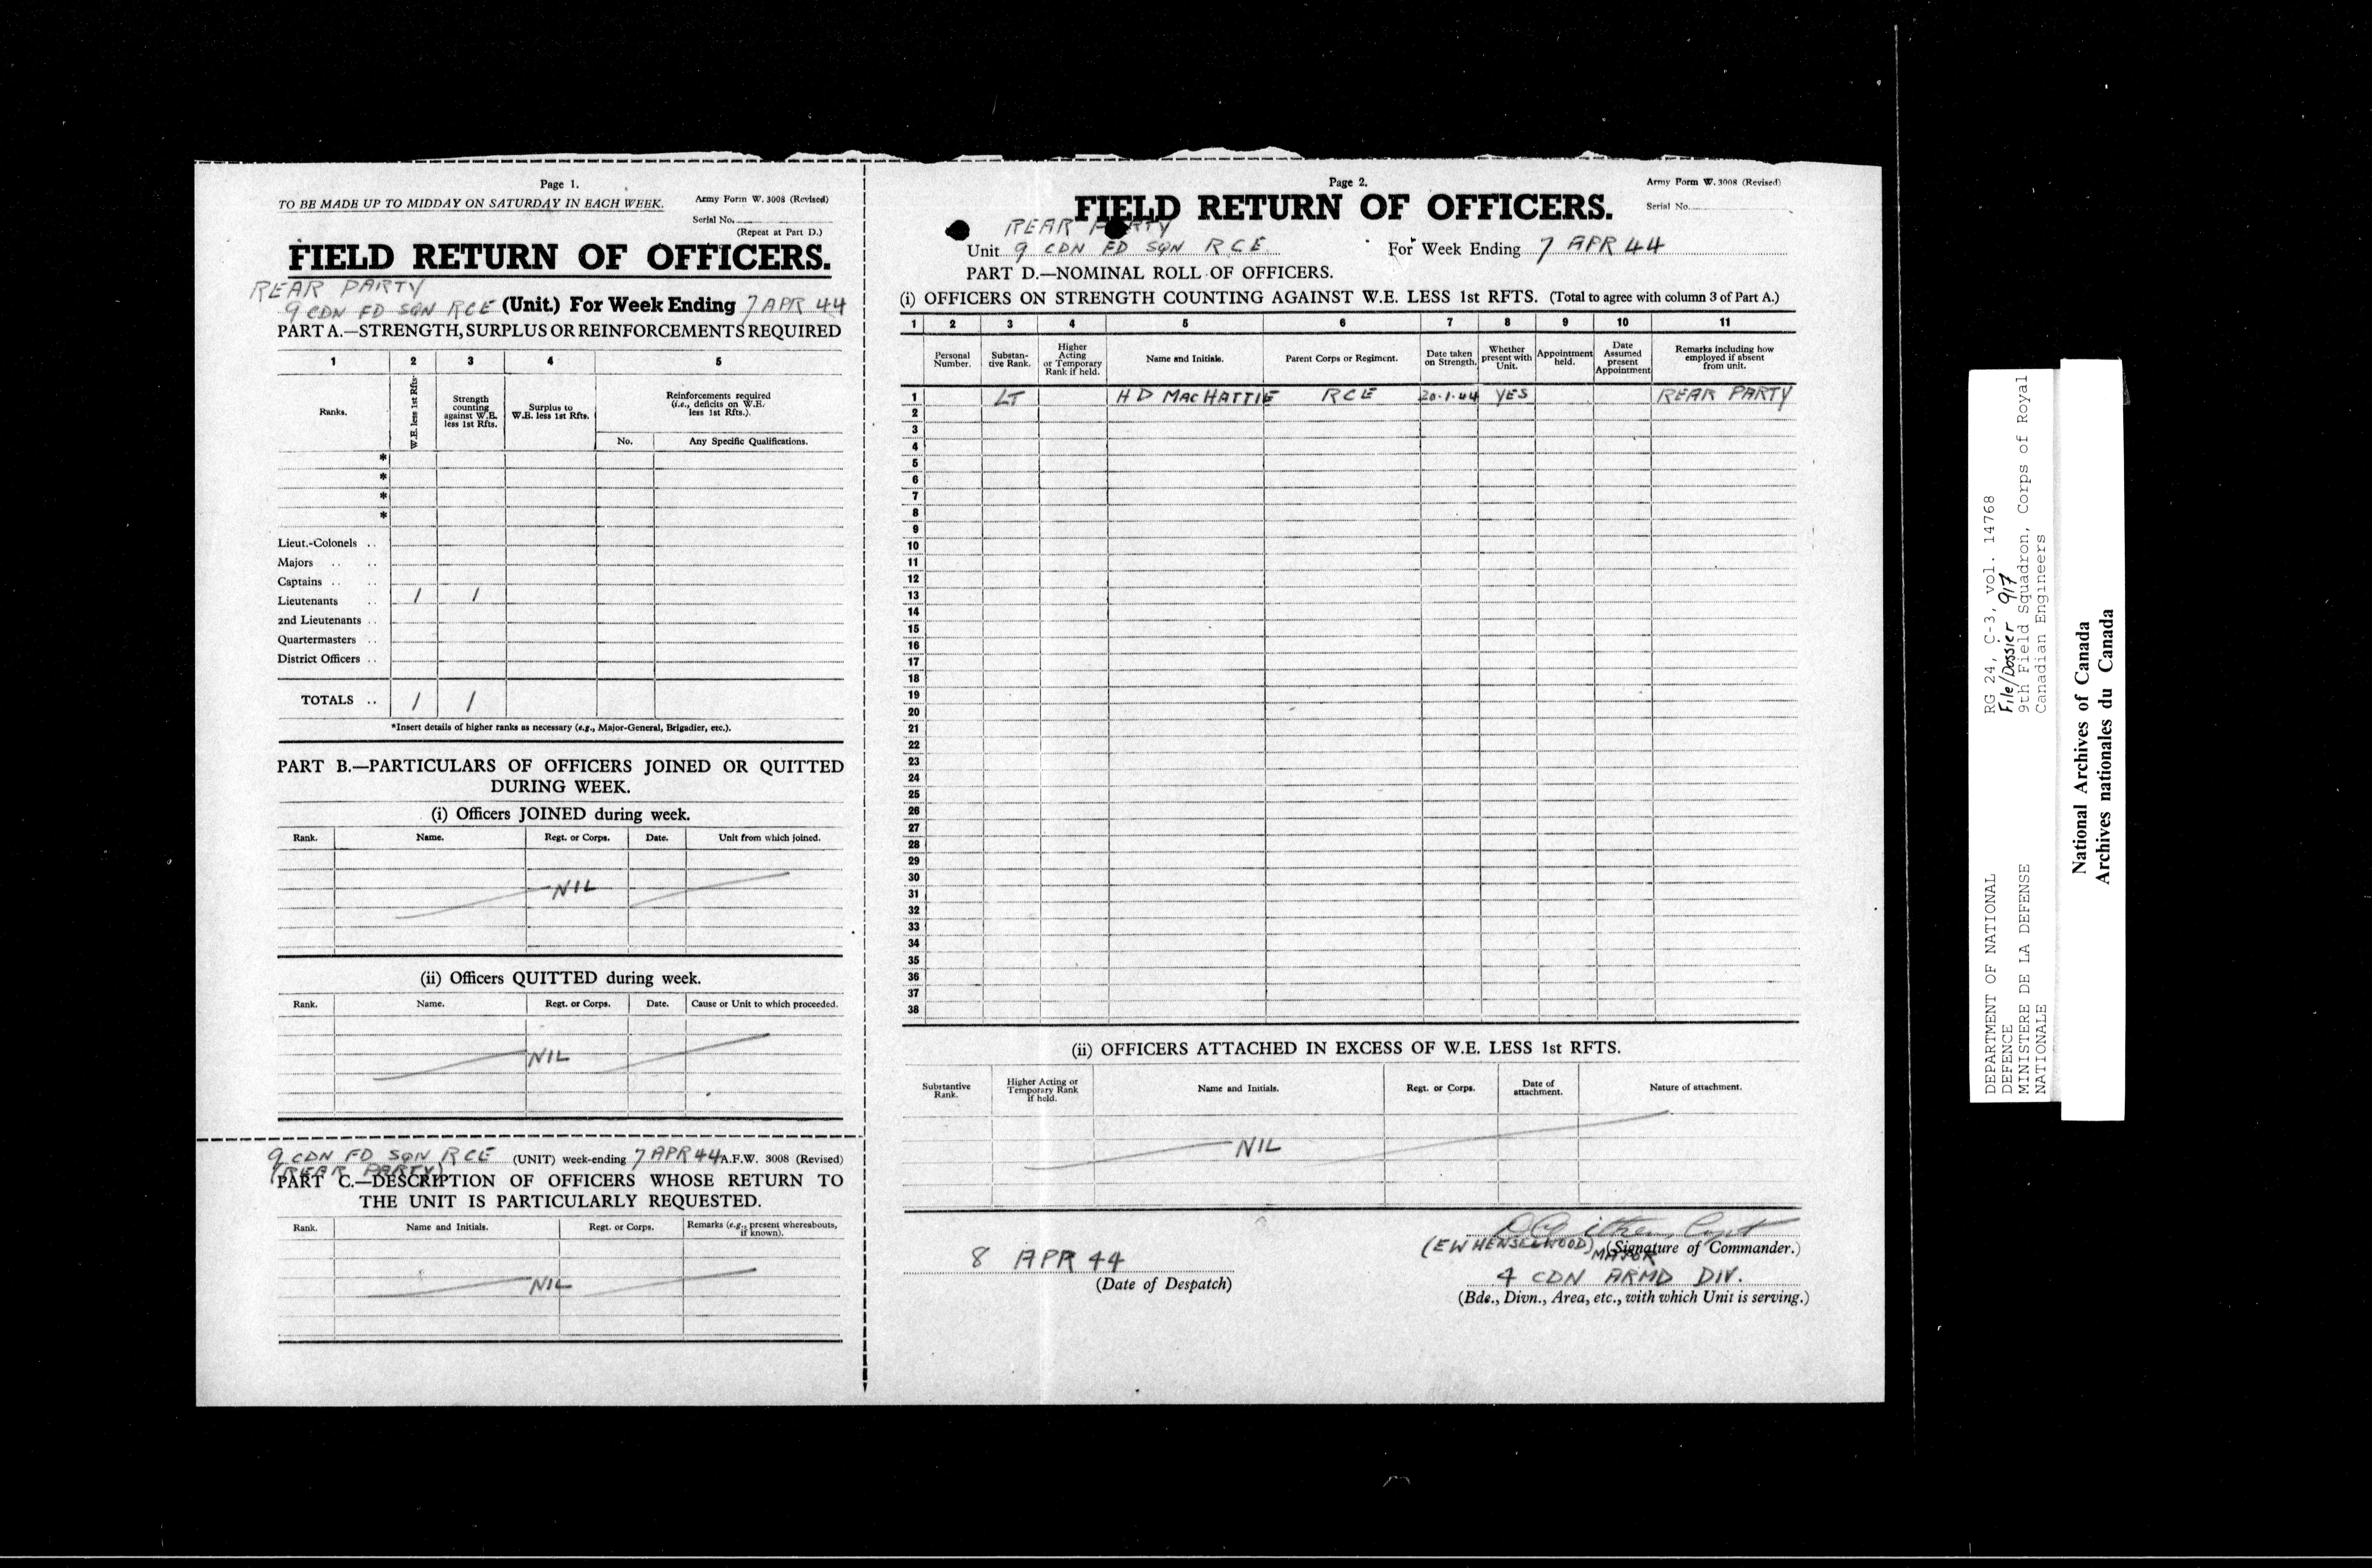 Page 1.
TO BE MADE UP TO MIDDAY ON SATURDAY IN EACH WEEK.
Army Form W. 3008 (Revised)
Serial No.
(Repeat at Part D.)
FIELD RETURN OF OFFICERS.
REAR PARTY
9 CDN FD SQN RCE (Unit.) For Week Ending 7 APR 44
PART A.—STRENGTH, SURPLUS OR REINFORCEMENTS REQUIRED
1 2 3 4 5
Ranks.
W.E. less 1st Rfts.
Strength counting against W.E. less 1st Rfts.
Surplus to W.E. less 1st Rfts.
Reinforcements required (i.e., deficits on W.E. less 1st Rfts.).
No. Any Specific Qualifications.
*
*
*
*
Lieut.-Colonels ..
Majors .. ..
Captains .. ..
Lieutenants .. 1 1
2nd Lieutenants ..
Quartermasters ..
District Officers ..
TOTALS .. 1 1
*Insert details of higher ranks as necessary (e.g., Major-General, Brigadier, etc.).
PART B.—PARTICULARS OF OFFICERS JOINED OR QUITTED
DURING WEEK.
(i) Officers JOINED during week.
Rank. Name. Regt. or Corps. Date. Unit from which joined.
NIL
(ii) Officers QUITTED during week.
Rank. Name. Regt. or Corps. Date. Cause or Unit to which proceeded.
NIL
9 CDN FD SQN RCE (UNIT) week-ending 7 APR 44 A.F.W. 3008 (Revised)
(REAR PARTY)
PART C.—DESCRIPTION OF OFFICERS WHOSE RETURN TO
THE UNIT IS PARTICULARLY REQUESTED.
Rank. Name and Initials. Regt. or Corps. Remarks (e.g., present whereabouts, if known).
NIL
Page 2.
Army Form W. 3008 (Revised)
Serial No.
FIELD RETURN OF OFFICERS.
REAR PARTY
Unit 9 CDN FD SQN RCE For Week Ending 7 APR 44
PART D.—NOMINAL ROLL OF OFFICERS.
(i) OFFICERS ON STRENGTH COUNTING AGAINST W.E. LESS 1st RFTS. (Total to agree with column 3 of Part A.)
1 2 3 4 5 6 7 8 9 10 11
Personal Number.
Substantive Rank.
Higher Acting or Temporary Rank if held.
Name and Initials.
Parent Corps or Regiment.
Date taken on Strength.
Whether present with Unit.
Appointment held.
Date Assumed present Appointment
Remarks including how employed if absent from unit.
1 LT H D MacHATTIE RCE 20·1·44 YES REAR PARTY
2
3
4
5
6
7
8
9
10
11
12
13
14
15
16
17
18
19
20
21
22
23
24
25
26
27
28
29
30
31
32
33
34
35
36
37
38
(ii) OFFICERS ATTACHED IN EXCESS OF W.E. LESS 1st RFTS.
Substantive Rank.
Higher Acting or Temporary Rank if held.
Name and Initials.
Regt. or Corps.
Date of attachment.
Nature of attachment.
NIL
8 APR 44
(Date of Despatch)
(EW HENSELWOOD) MAJOR (Signature of Commander.)
4 CDN ARMD DIV.
(Bde., Divn., Area, etc., with which Unit is serving.)
DEPARTMENT OF NATIONAL DEFENCE
MINISTERE DE LA DEFENSE NATIONALE
RG 24, C-3, vol. 14768
File/Dossier 917
9th Field Squadron, Corps of Royal
Canadian Engineers
National Archives of Canada
Archives nationales du Canada